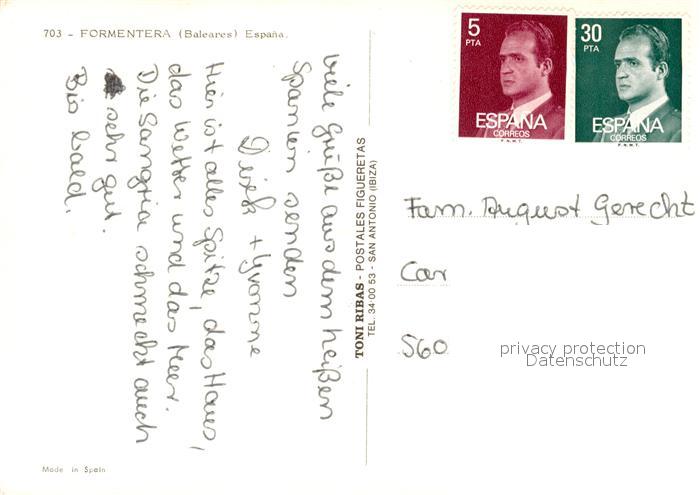 703 - FORMENTERA (Baleares) España.
viele Grüße aus dem heißen
Spanien senden
Dirk + Yvonne
Hier ist alles Spitze, das Haus,
das Wetter und das Meer.
Die Sangria schmeckt auch
sehr gut.
Bis bald.
Made in Spain
TONI RIBAS - POSTALES FIGUERETAS
TEL. 34 00 53 - SAN ANTONIO (IBIZA)
5
PTA
ESPAÑA
CORREOS
F.N.M.T.
30
PTA
ESPAÑA
CORREOS
F.N.M.T.
Fam. August Gerecht
Car
560
privacy protection
Datenschutz